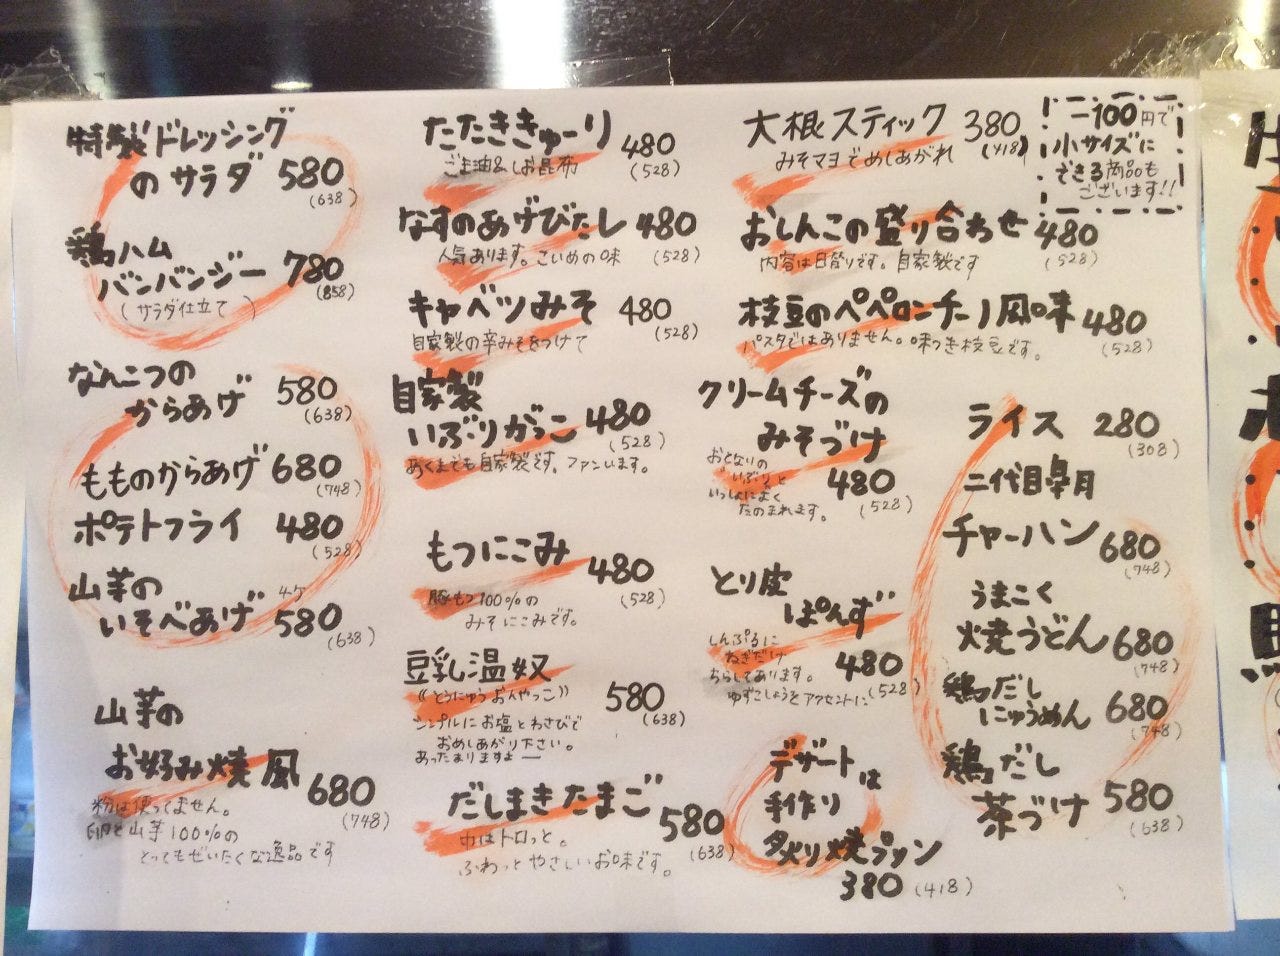 特製ドレッシング
のサラダ 580
(638)
鶏ハム
バンバンジー 780
(858)
(サラダ仕立て)
なんこつの
からあげ 580
(638)
もものからあげ 680
(748)
ポテトフライ 480
(528)
山芋の 4ケ
いそべあげ 580
(638)
山芋の
お好み焼風 680
(748)
粉は使ってません。
卵と山芋100%の
とってもぜいたくな逸品です
たたききゅーり 480
ごま油&しお昆布 (528)
なすのあげびたし 480
人気あります。こいめの味 (528)
キャベツみそ 480
自家製の辛みそをつけて (528)
自家製
いぶりがっこ 480
(528)
あくまでも自家製です。ファンいます。
もつにこみ 480
(528)
豚もつ100%の
みそにこみです。
豆乳温奴 580
(638)
《とうにゅうおんやっこ》
シンプルにお塩とわさびで
おめしあがり下さい。
あったまりますよー
だしまきたまご 580
(638)
中はトロっと。
ふわっとやさしいお味です。
大根スティック 380
(418)
みそマヨでめしあがれ
おしんこの盛り合わせ 480
(528)
内容は日替りです。自家製です
枝豆のペペロンチーノ風味 480
(528)
パスタではありません。味つき枝豆です。
クリームチーズの
みそづけ
480
(528)
おとなりの
いぶりと
いっしょによく
たのまれます。
とり皮
ぽんず
480
(528)
しんぷるに
ねぎだけ
ちらしてあります。
ゆずこしょうをアクセントに
デザートは
手作り
炙り焼プリン
380 (418)
-100円で
小サイズに
できる商品も
ございます!!
ライス 280
(308)
二代目皐月
チャーハン 680
(748)
うまこく
焼うどん 680
(748)
鶏だし
にゅうめん 680
(748)
鶏だし
茶づけ 580
(638)